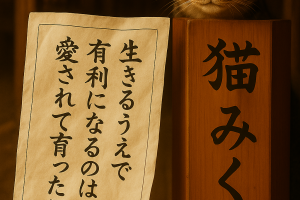 生きるうえで
有利になるのは
愛されて育った
猫みく